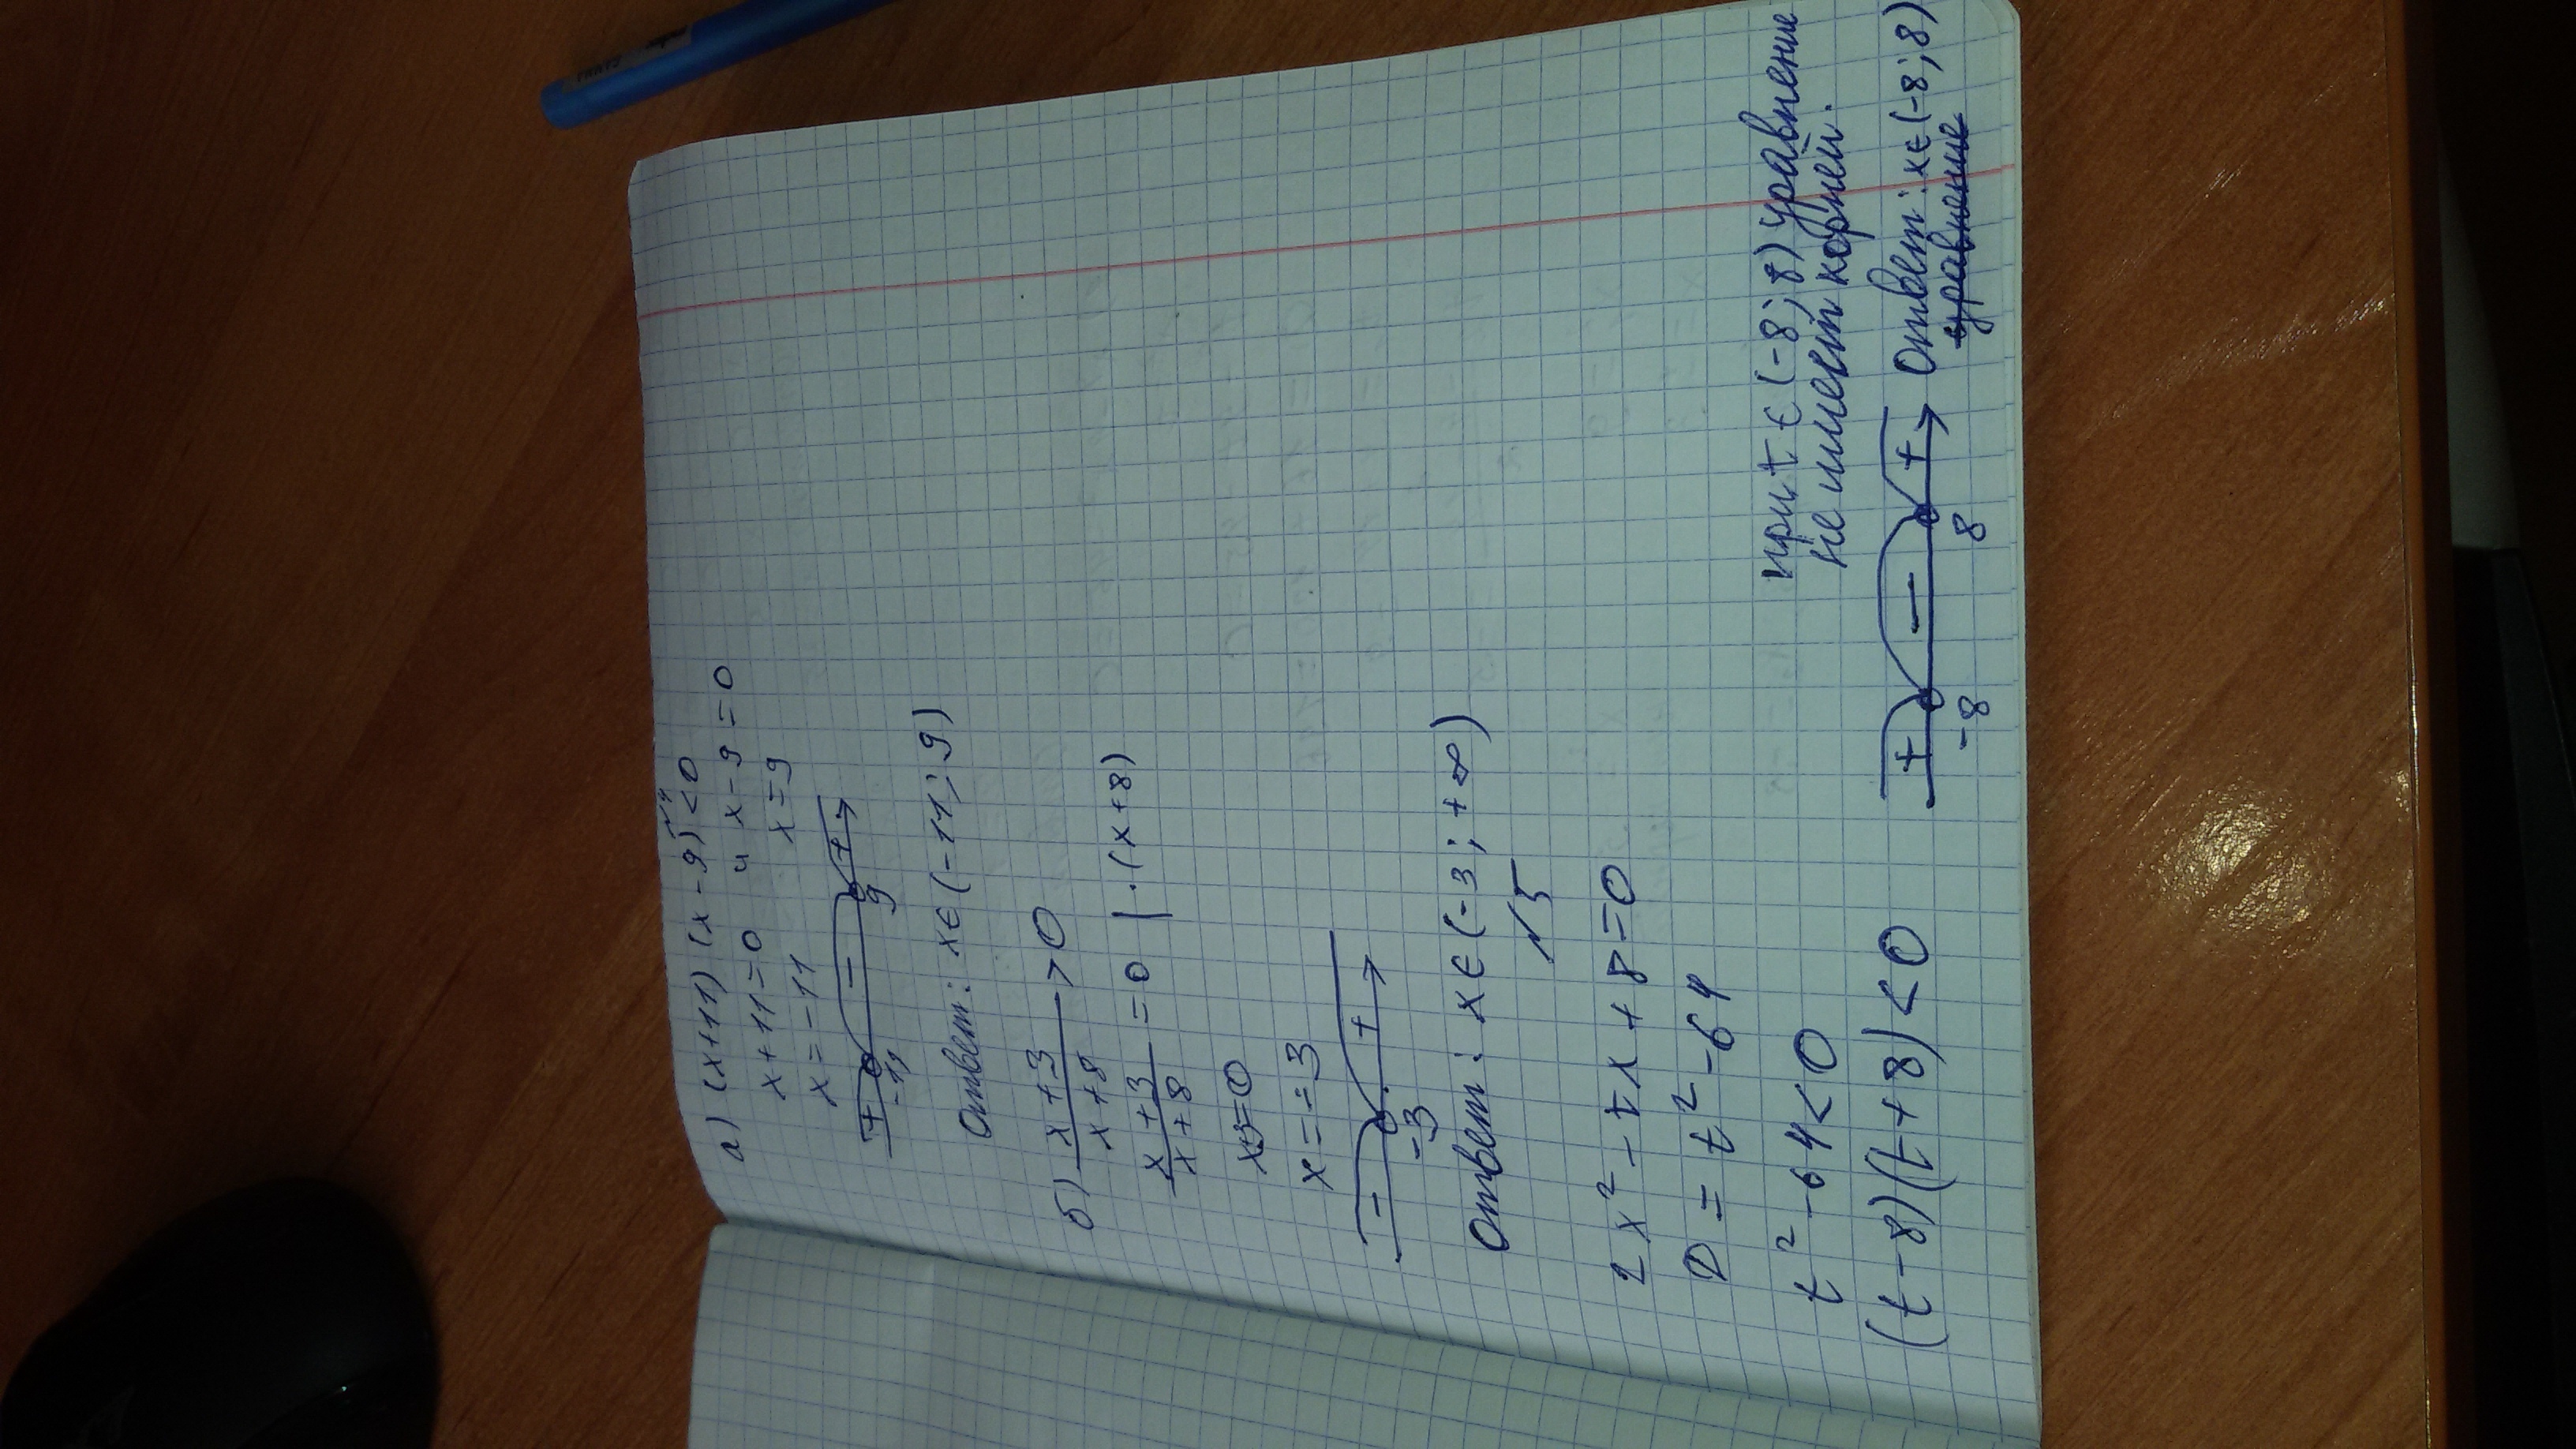 №4
а) (x+11)(x-9)<0
x+11=0 и x-9=0
x=-11 x=9
+ - +
-11 9
Ответ: x∈(-11; 9)
б) x+3/x+8 >0
x+3/x+8 =0 | ·(x+8)
x=-3
- +
-3
Ответ: x∈(-3; +∞)
№5
2x²-tx+8=0
D=t²-64
t²-64<0
при t∈(-8; 8) уравнение
не имеет корней.
(t-8)(t+8)<0
+ - +
-8 8
Ответ: x∈(-8; 8)
уравнение